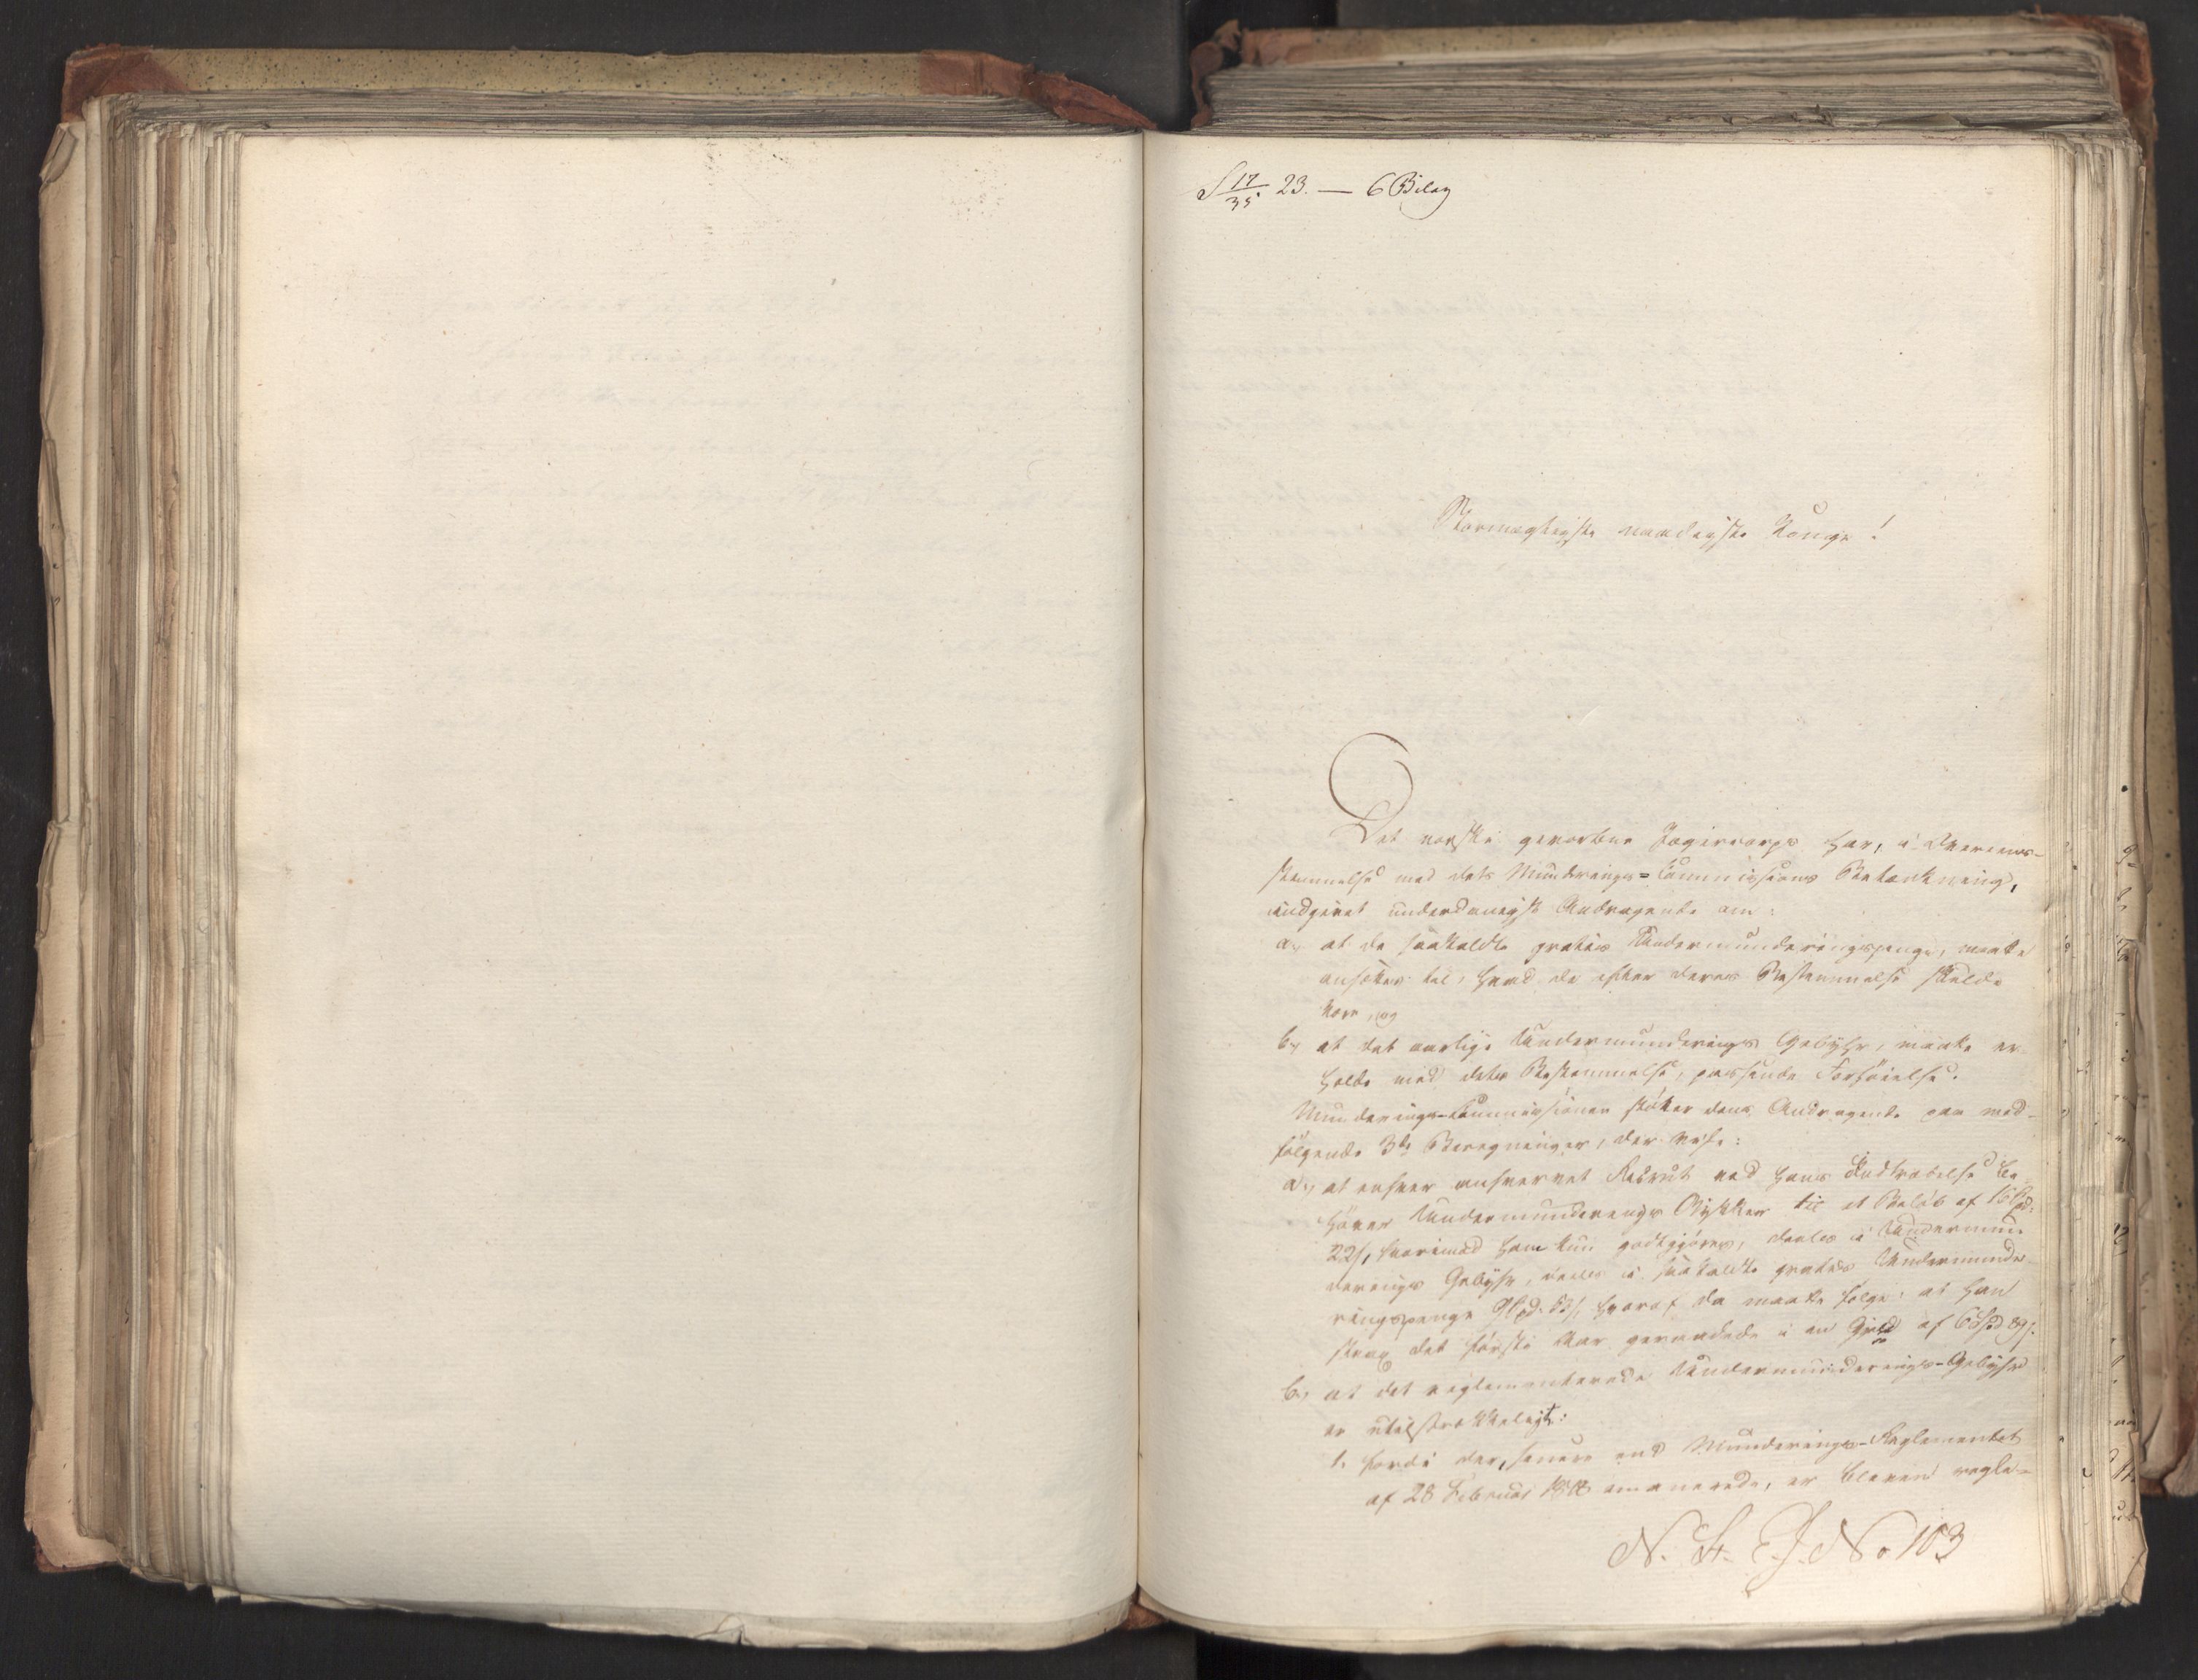 S 17/35 23. — 6 Bilag
Stormægtigste naadigste Konge!
Det norske gevorbne Jægercorps har, i Overeens-
stemmelse med dets Munderings-Commissions Betænkning,
indgivet underdanigst Andragende om:
a, at de saakaldte gratis Undermunderingspenge, maatte
ansættes til, hvad de efter deres Bestemmelse skulde
være, og
b, at det aarlige Undermunderings Gebyhr, maatte er-
holde med dets Bestemmelse, passende Forhøielse.
Munderings-Commissionen støtter dens Andragende paa med-
følgende 3de Beregninger, der vise:
a, at enhver anhvervet Rekrut ved hans Indtrædelse be-
høver Undermunderings Stykker til et Beløb af 16 Spd:
22 s, hvorimod ham kun godtgjøres, deels i Undermun-
derings Gebyhr, deels i saakaldte gratis Undermunde-
ringspenge 9 Spd. 53 s, hvoraf da maatte følge: at han
strax det første Aar geraadede i en Gjeld af 6 Spd 89 s.
b, at det reglementerede Undermunderings-Gebyhr
er utilstrækkeligt:
1. fordi der, senere end Munderings-Reglementet
af 28 Februar 1818 emanerede, er bleven regle-
N. St. E. J. No 103